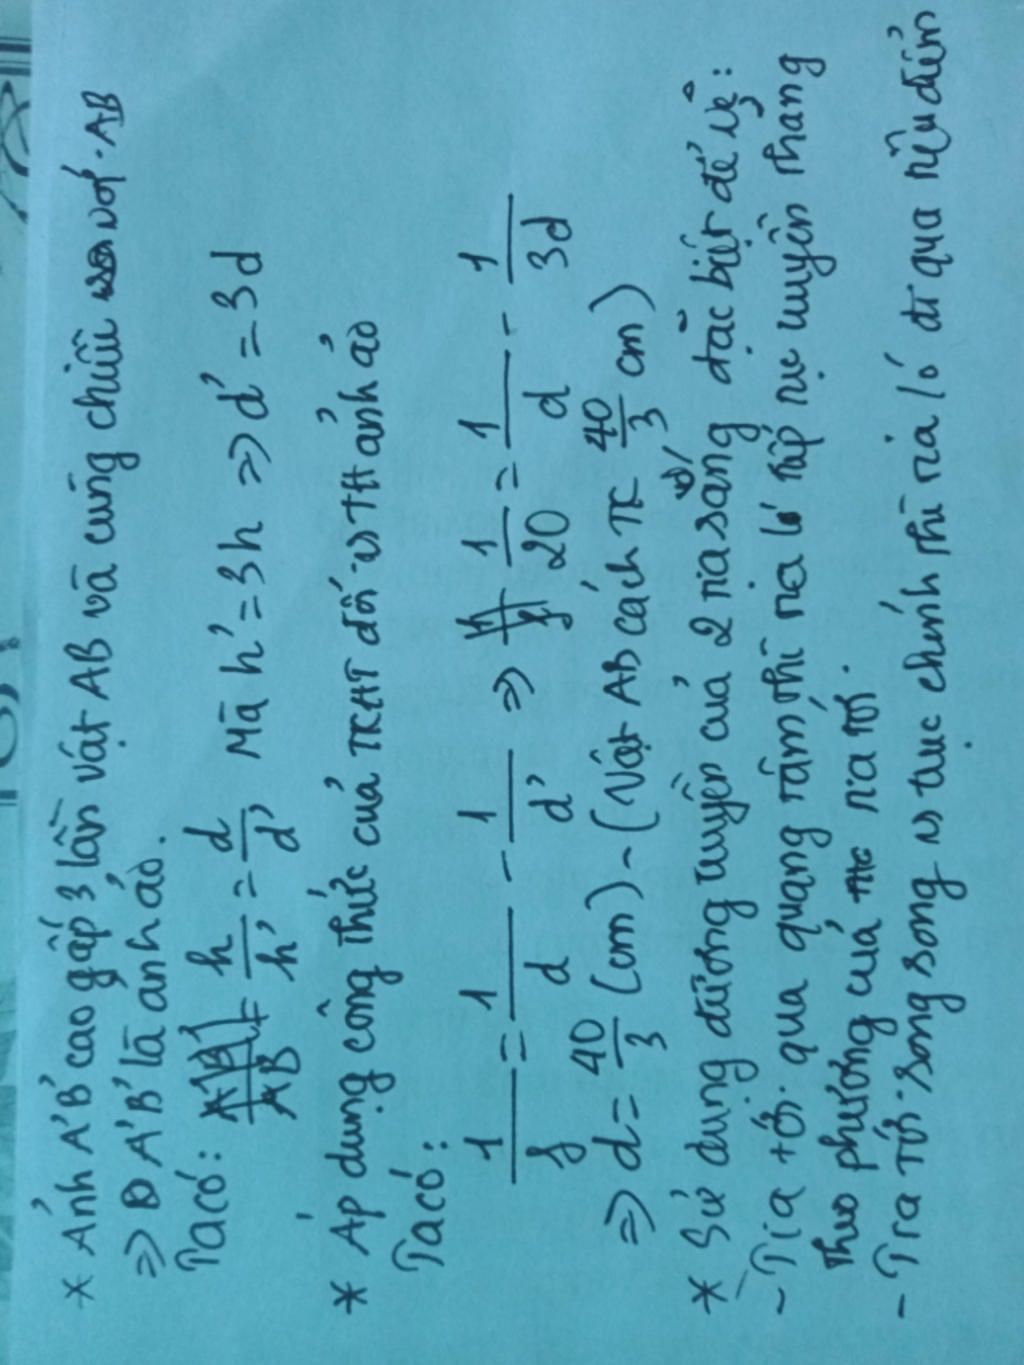 * Ảnh A'B' cao gấp 3 lần vật AB và cùng chiều với AB
=> A'B' là ảnh ảo.
Ta có: h/h' = d/d', Mà h' = 3h => d' = 3d
* Áp dụng công thức của TKHT đối vs TH ảnh ảo
Ta có:
1/f = 1/d - 1/d' => 1/20 = 1/d - 1/3d
=> d = 40/3 (cm) - (Vật AB cách TK 40/3 cm)
* Sử dụng đường truyền của 2 tia sáng đặc biệt để vẽ:
- Tia tới qua quang tâm thì tia ló tiếp tục truyền thẳng
theo phương của tia tới.
- Tia tới song song vs trục chính thì tia ló đi qua tiêu điểm